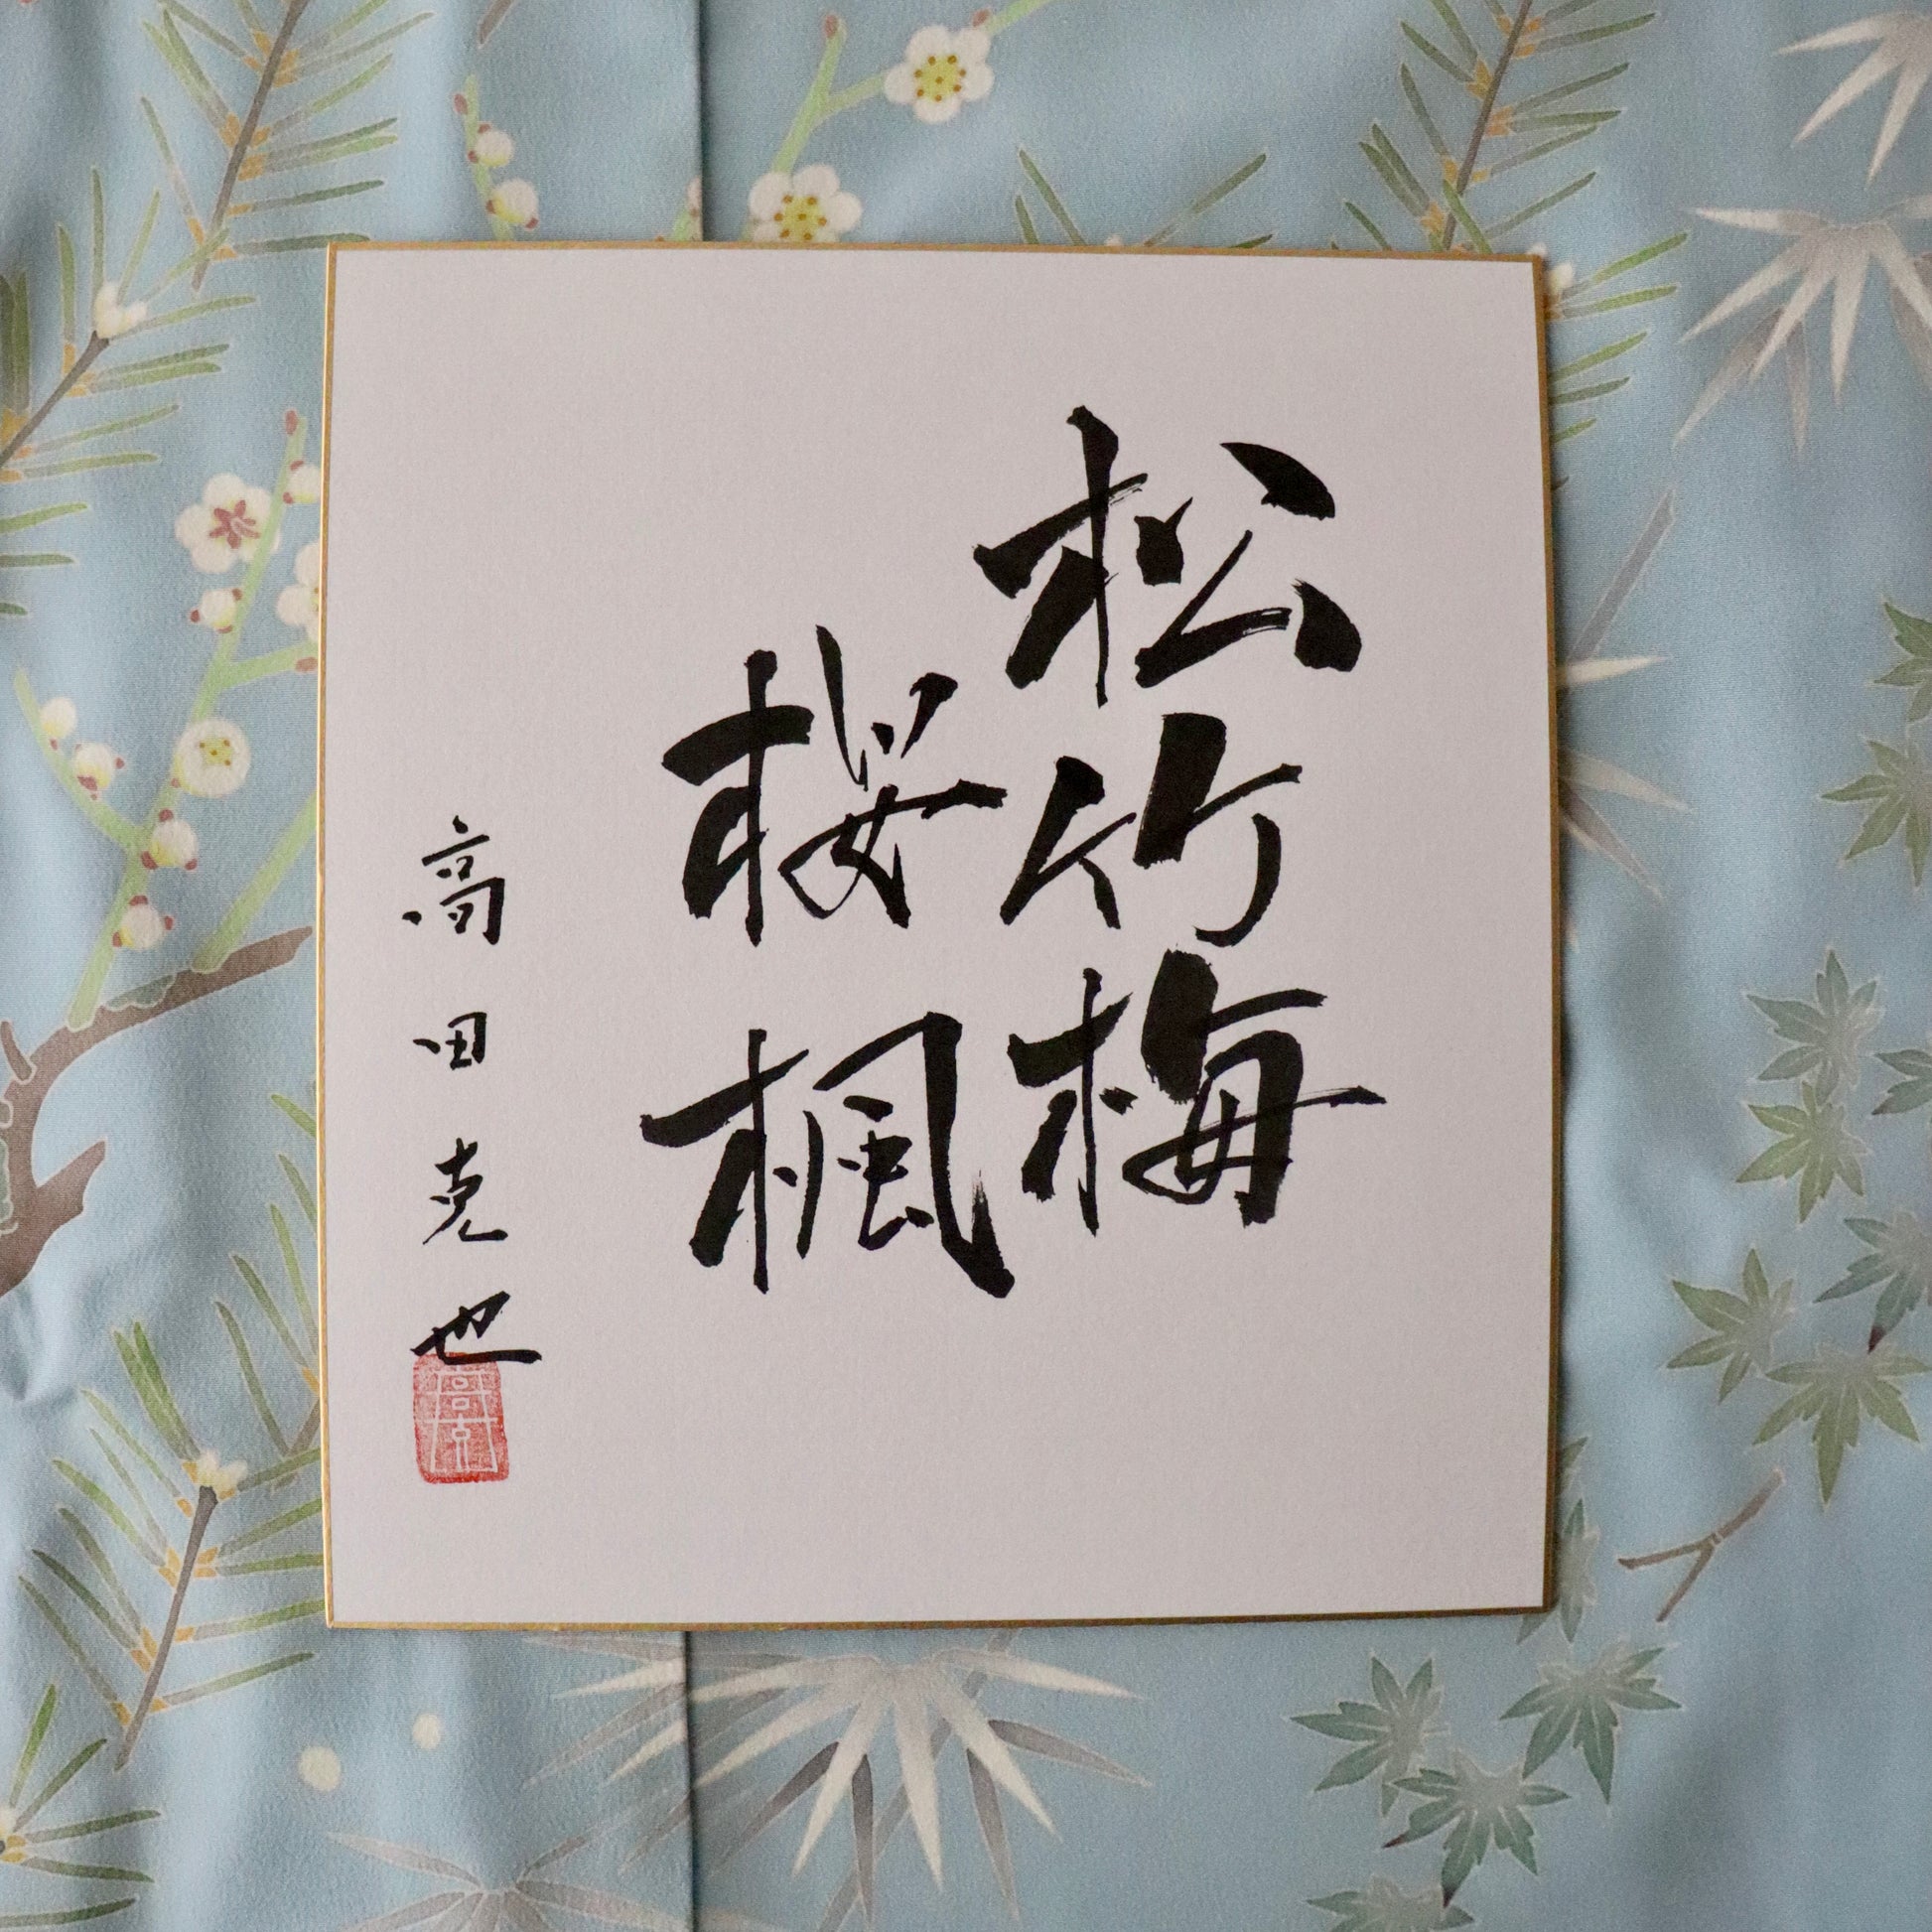 松竹梅
桜楓
高田克也